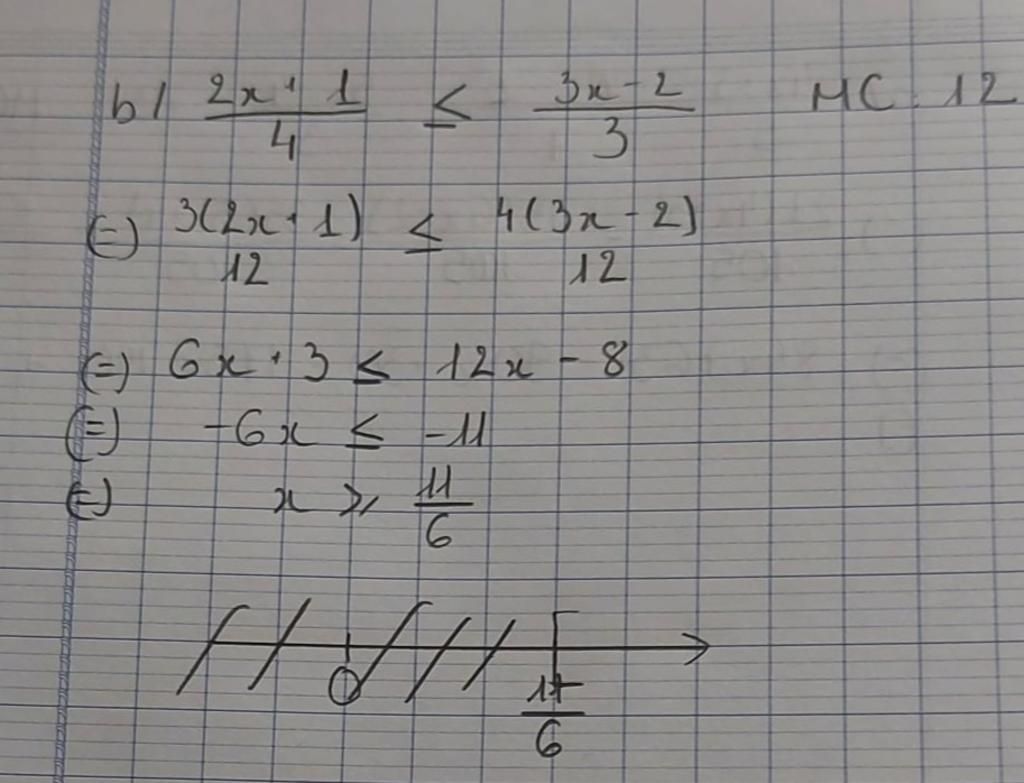 b) (2x + 1)/4 ≤ (3x - 2)/3 MC 12
(=) 3(2x + 1)/12 ≤ 4(3x - 2)/12
(=) 6x + 3 ≤ 12x - 8
(=) -6x ≤ -11
(=) x ≥ 11/6
0 [ 11/6